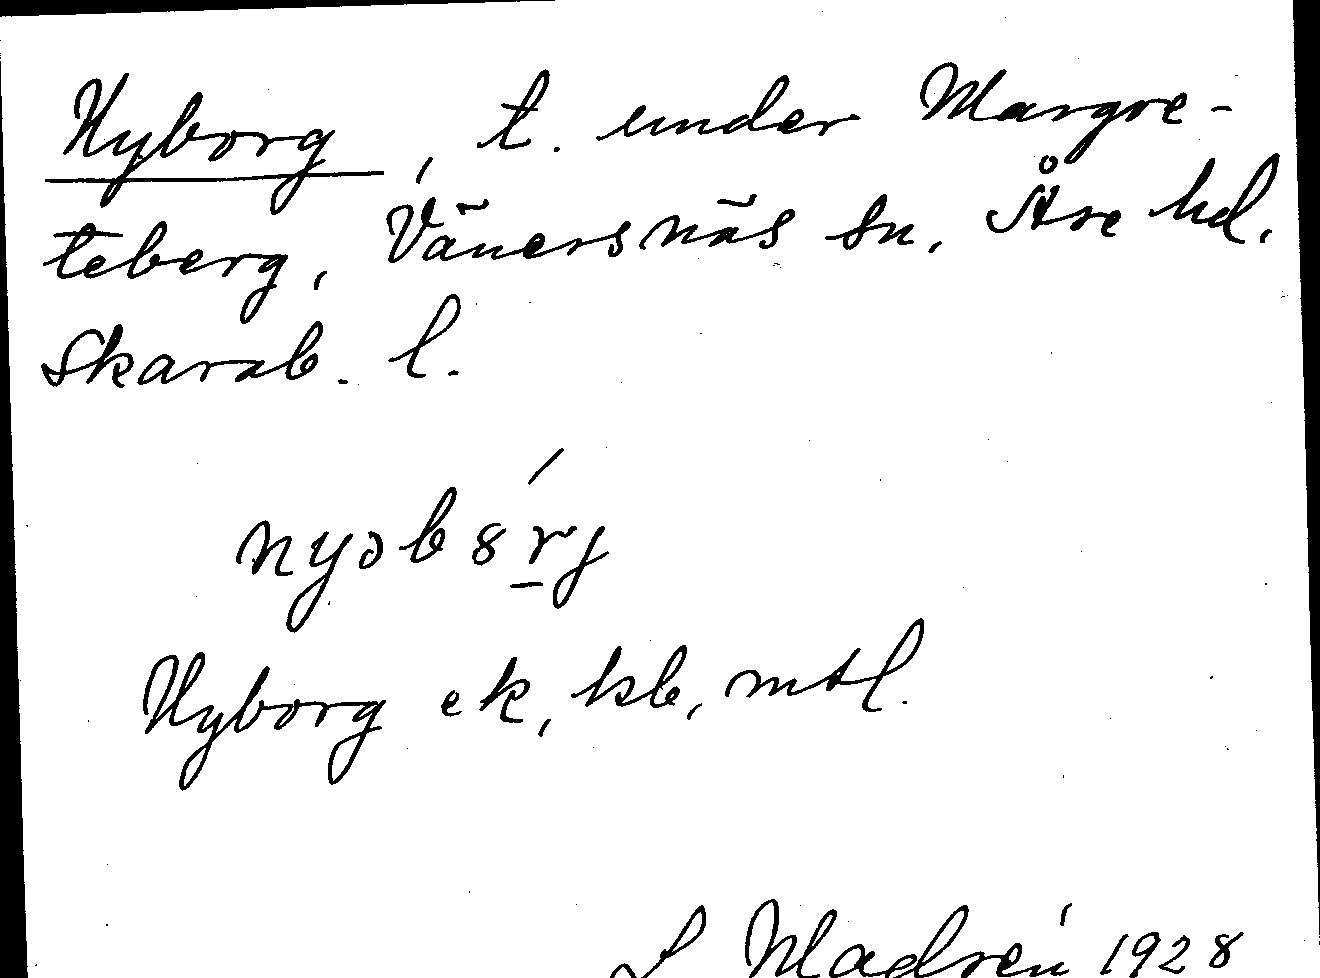 Nyborg, t. under Margre-
teberg, Vänersnäs sn, Åse hd.
Skarab. l.
Nyborg ek, kb, mtl.
S Modrén 1928